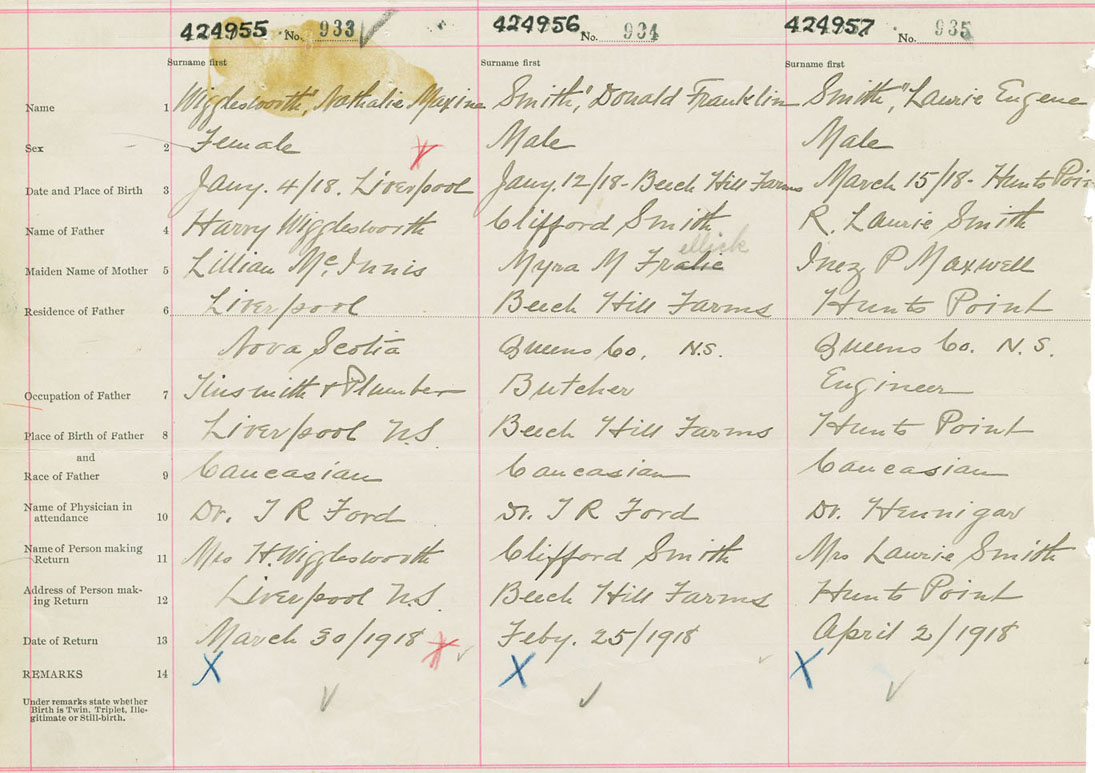 424955 No. 933 424956 No. 934 424957 No. 935
Surname first Surname first Surname first
Name 1 Wigglesworth, Nathalie Maxine Smith, Donald Franklin Smith, Laurie Eugene
Sex 2 Female Male Male
Date and Place of Birth 3 Jany. 4/18. Liverpool Jany. 12/18 - Beech Hill Farms March 15/18 - Hunts Poin
Name of Father 4 Harry Wigglesworth Clifford Smith R. Laurie Smith
ellick
Maiden Name of Mother 5 Lillian McInnis Myra M Fralic Inez P Maxwell
Residence of Father 6 Liverpool Beech Hill Farms Hunts Point
Nova Scotia Queens Co. N.S. Queens Co. N.S.
Occupation of Father 7 Tinsmith & Plumber Butcher Engineer
Place of Birth of Father 8 Liverpool N.S. Beech Hill Farms Hunts Point
and
Race of Father 9 Caucasian Caucasian Caucasian
Name of Physician in
attendance 10 Dr. T R Ford Dr. T R Ford Dr. Hennigar
Name of Person making
Return 11 Mrs H. Wigglesworth Clifford Smith Mrs Laurie Smith
Address of Person mak-
ing Return 12 Liverpool N.S. Beech Hill Farms Hunts Point
Date of Return 13 March 30/1918 Feby. 25/1918 April 2/1918
REMARKS 14 X X X
Under remarks state whether
Birth is Twin, Triplet, Ille-
gitimate or Still-birth.